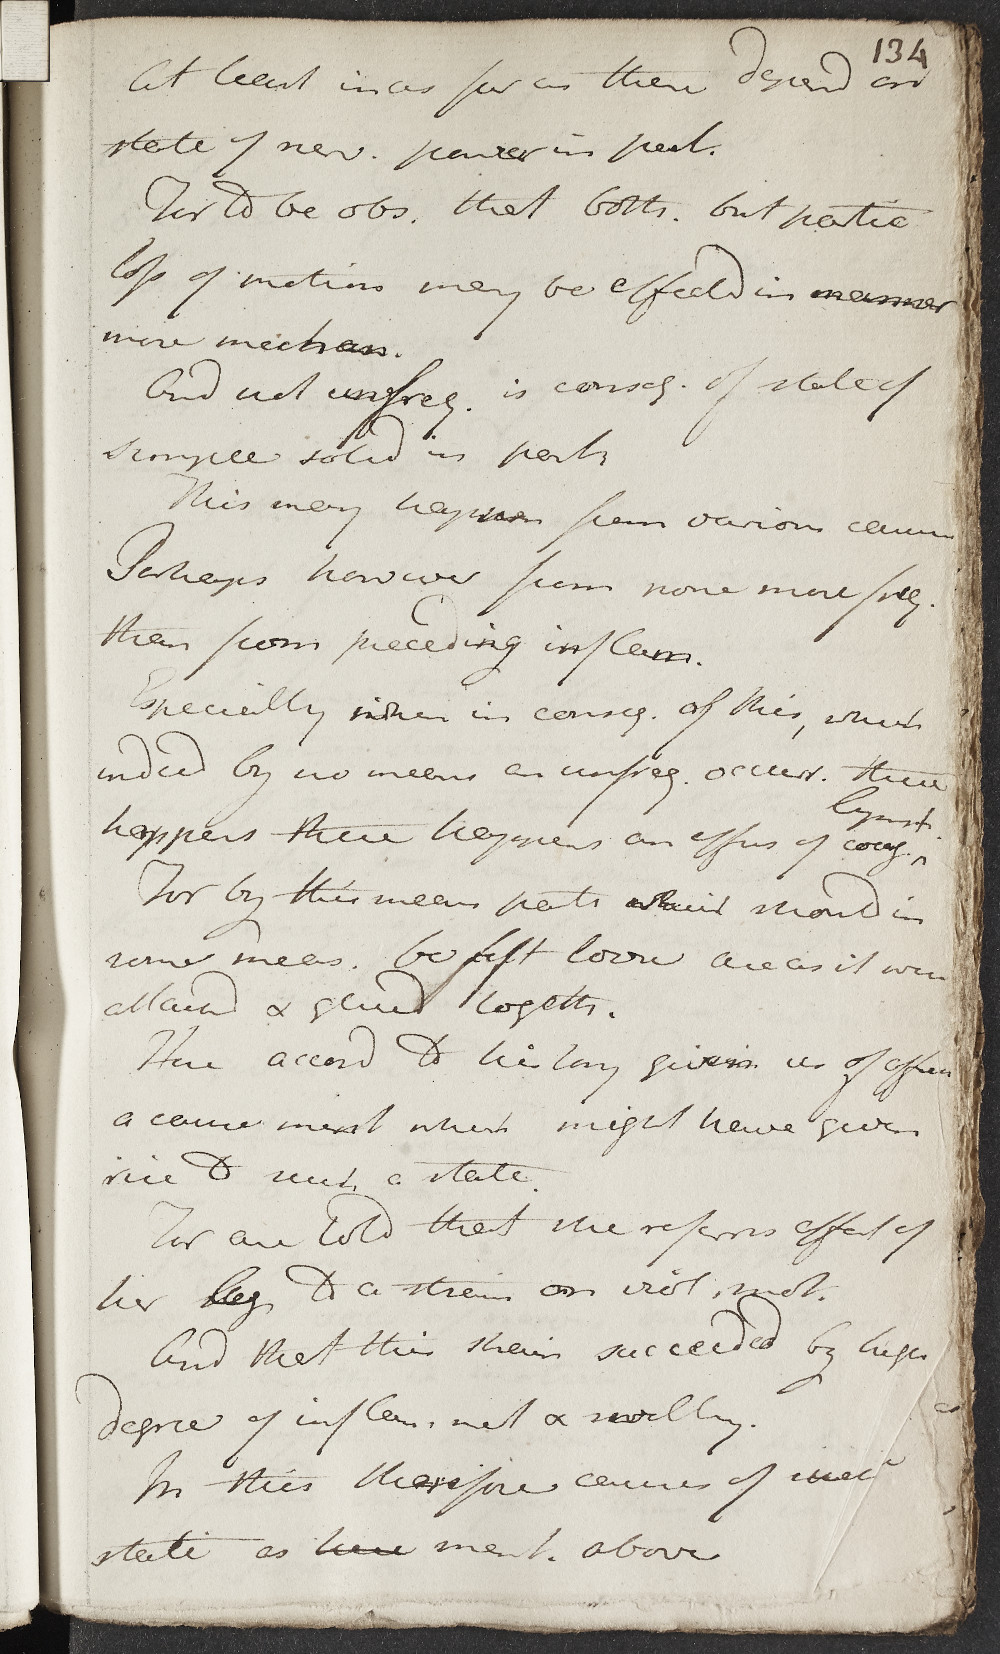 134
At least in as far as these depend on
state of nerv. power in part.
For to be obs. that both. but partic
loss of motion may be effected in manner
more mechan.
And not unfreq. is conseq. of state of
simple solid in parts
This may happen from various causes
Perhaps however from none more freq.
than from preceding inflam.
Especially when in conseq. of this, which
indeed by no means an unfreq. occurr. there
lymph.
happens there happens an effus of coag.
For by this means parts which should in
some meas. be left loose are as it were
attached & glued togeth.
Here accord to history given us of affection
a cause ment which might have given
rise to such a state.
For are told that she referrs affect of
her leg to a strain or viol. mot.
And that this strain succeeded by high
degree of inflam. met & swelling.
In this therefore causes of such
state as here ment. above